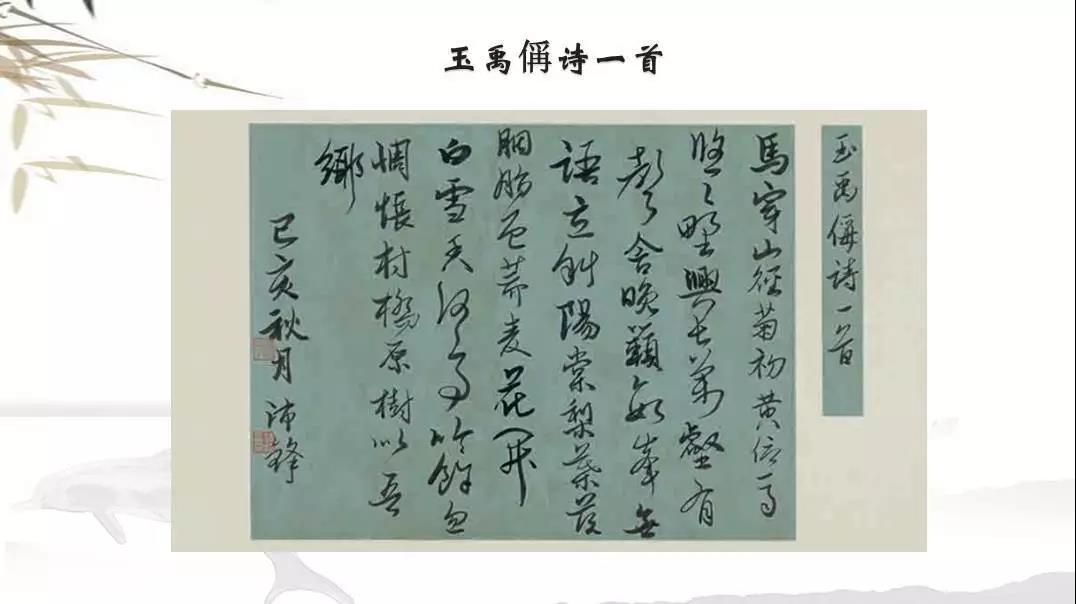 玉禹偁诗一首
玉禹偁詩一首
馬穿山徑菊初黄信馬
悠〻野興長萬壑有
聲含晚籟數峯無
語立斜陽棠梨葉落
胭脂色蕎麦花開
白雪香何事吟餘忽
惆悵村橋原樹似吾
鄉
己亥秋月 沛鋒